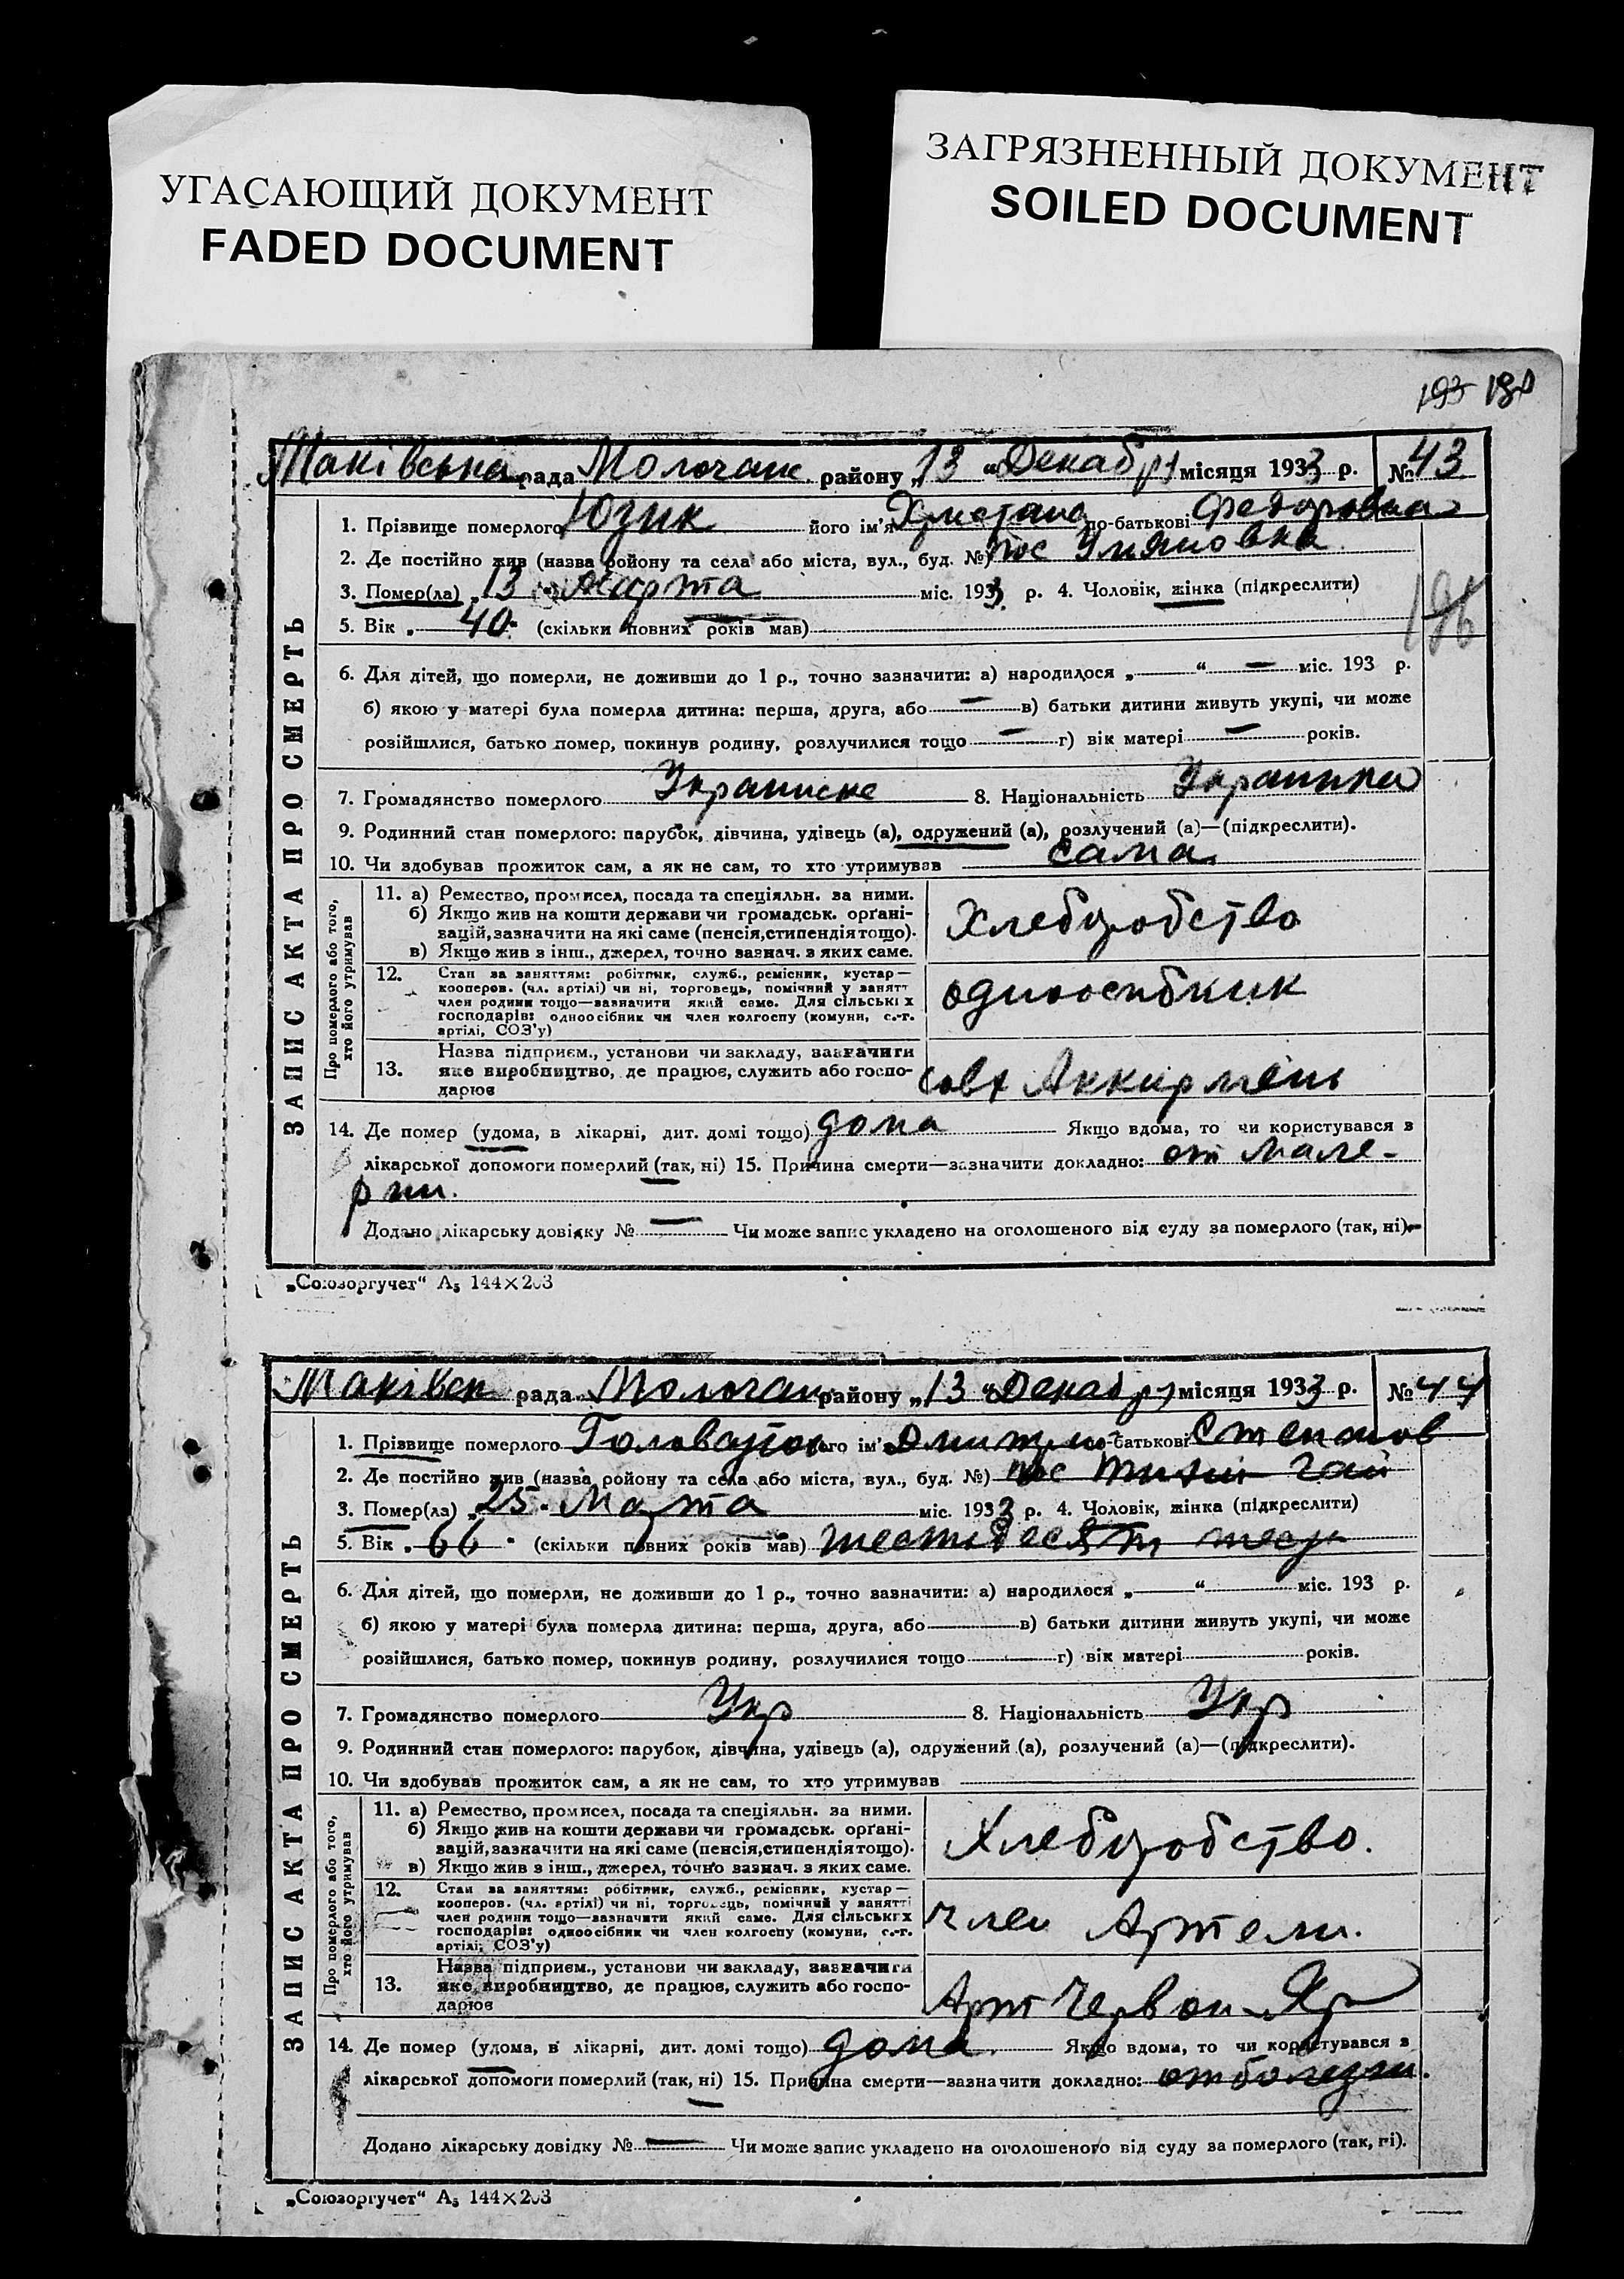 УГАСАЮЩИЙ ДОКУМЕНТ
FADED DOCUMENT
ЗАГРЯЗНЕННЫЙ ДОКУМЕНТ
SOILED DOCUMENT
193
ЗАПИС АКТА ПРО СМЕРТЬ
Маківська рада Молочанс району „13“ Декабря місяця 1933 р. № 43
1. Прізвище померлого Юзик його ім'я по-батькові Федоровна
2. Де постійно жив (назва ройону та села або міста, вул., буд. №) пос
3. Помер(ла) „13 Марта міс. 1933 р. 4. Чоловік, жінка (підкреслити)
5. Вік „ 40 (скільки повних років мав)
196
6. Для дітей, що померли, не доживши до 1 р., точно зазначити: а) народилося „ “ — міс. 193 р.
б) якою у матері була померла дитина: перша, друга, або — в) батьки дитини живуть укупі, чи може
розійшлися, батько помер, покинув родину, розлучилися тощо — г) вік матері — років.
7. Громадянство померлого 8. Національність Украинка
9. Родинний стан померлого: парубок, дівчина, удівець (а), одружений (а), розлучений (а)—(підкреслити).
10. Чи здобував прожиток сам, а як не сам, то хто утримував сама
Про померлого або того,
хто його утримував
11. а) Ремество, промисел, посада та спеціяльн. за ними.
б) Якщо жив на кошти держави чи громадськ. орґані-
зацій, зазначити на які саме (пенсія, стипендія тощо).
в) Якщо жив з інш., джерел, точно зазнач. з яких саме.
Хлеборобство
12. Стан за заняттям: робітник, служб., ремісник, кустар—
кооперов. (чл. артілі) чи ні, торговець, помічний у занятт
член родини тощо—зазначити який саме. Для сільських
господарів: одноосібник чи член колгоспу (комуни, с.-г.
артілі, СОЗ'у)
одноосибник
13. Назва підприєм., установи чи закладу, зазначити
яке виробництво, де працює, служить або госпо-
дарює
совх Аккирмень
14. Де помер (удома, в лікарні, дит. домі тощо) дома Якщо вдома, то чи користувався з
лікарської допомоги померлий (так, ні) 15. Причина смерти—зазначити докладно: от Маля-
рии.
Додано лікарську довідку № — Чи може запис укладено на оголошеного від суду за померлого (так, ні).
„Союзоргучет“ А5 144×203
ЗАПИС АКТА ПРО СМЕРТЬ
Маківск рада Молочан району „13“ Декабря місяця 1933 р. № 44
1. Прізвище померлого його ім'я Дмитрий по-батькові Степанов
2. Де постійно жив (назва ройону та села або міста, вул., буд. №) пос Тихий Гай
3. Помер(ла) „25“ Марта міс. 1933 р. 4. Чоловік, жінка (підкреслити)
5. Вік „ 66 “ (скільки повних років мав) шестьдесят шесть
6. Для дітей, що померли, не доживши до 1 р., точно зазначити: а) народилося „ “ міс. 193 р.
б) якою у матері була померла дитина: перша, друга, або в) батьки дитини живуть укупі, чи може
розійшлися, батько помер, покинув родину, розлучилися тощо г) вік матері років.
7. Громадянство померлого Укр 8. Національність Укр
9. Родинний стан померлого: парубок, дівчина, удівець (а), одружений (а), розлучений (а)—(підкреслити).
10. Чи здобував прожиток сам, а як не сам, то хто утримував
Про померлого або того,
хто його утримував
11. а) Ремество, промисел, посада та спеціяльн. за ними.
б) Якщо жив на кошти держави чи громадськ. орґані-
зацій, зазначити на які саме (пенсія, стипендія тощо).
в) Якщо жив з інш., джерел, точно зазнач. з яких саме.
Хлеборобство.
12. Стан за заняттям: робітник, служб., ремісник, кустар—
кооперов. (чл. артілі) чи ні, торговець, помічний у занятті
член родини тощо—зазначити який саме. Для сільських
господарів: одноосібник чи член колгоспу (комуни, с.-г.
артілі, СОЗ'у)
член Артели.
13. Назва підприєм., установи чи закладу, зазначити
яке виробництво, де працює, служить або госпо-
дарює
Арт Червон Яр
14. Де помер (удома, в лікарні, дит. домі тощо) дома. Якщо вдома, то чи користувався з
лікарської допомоги померлий (так, ні) 15. Причина смерти—зазначити докладно: от болезни.
Додано лікарську довідку № — Чи може запис укладено на оголошеного від суду за померлого (так, ні).
„Союзоргучет“ А5 144×203